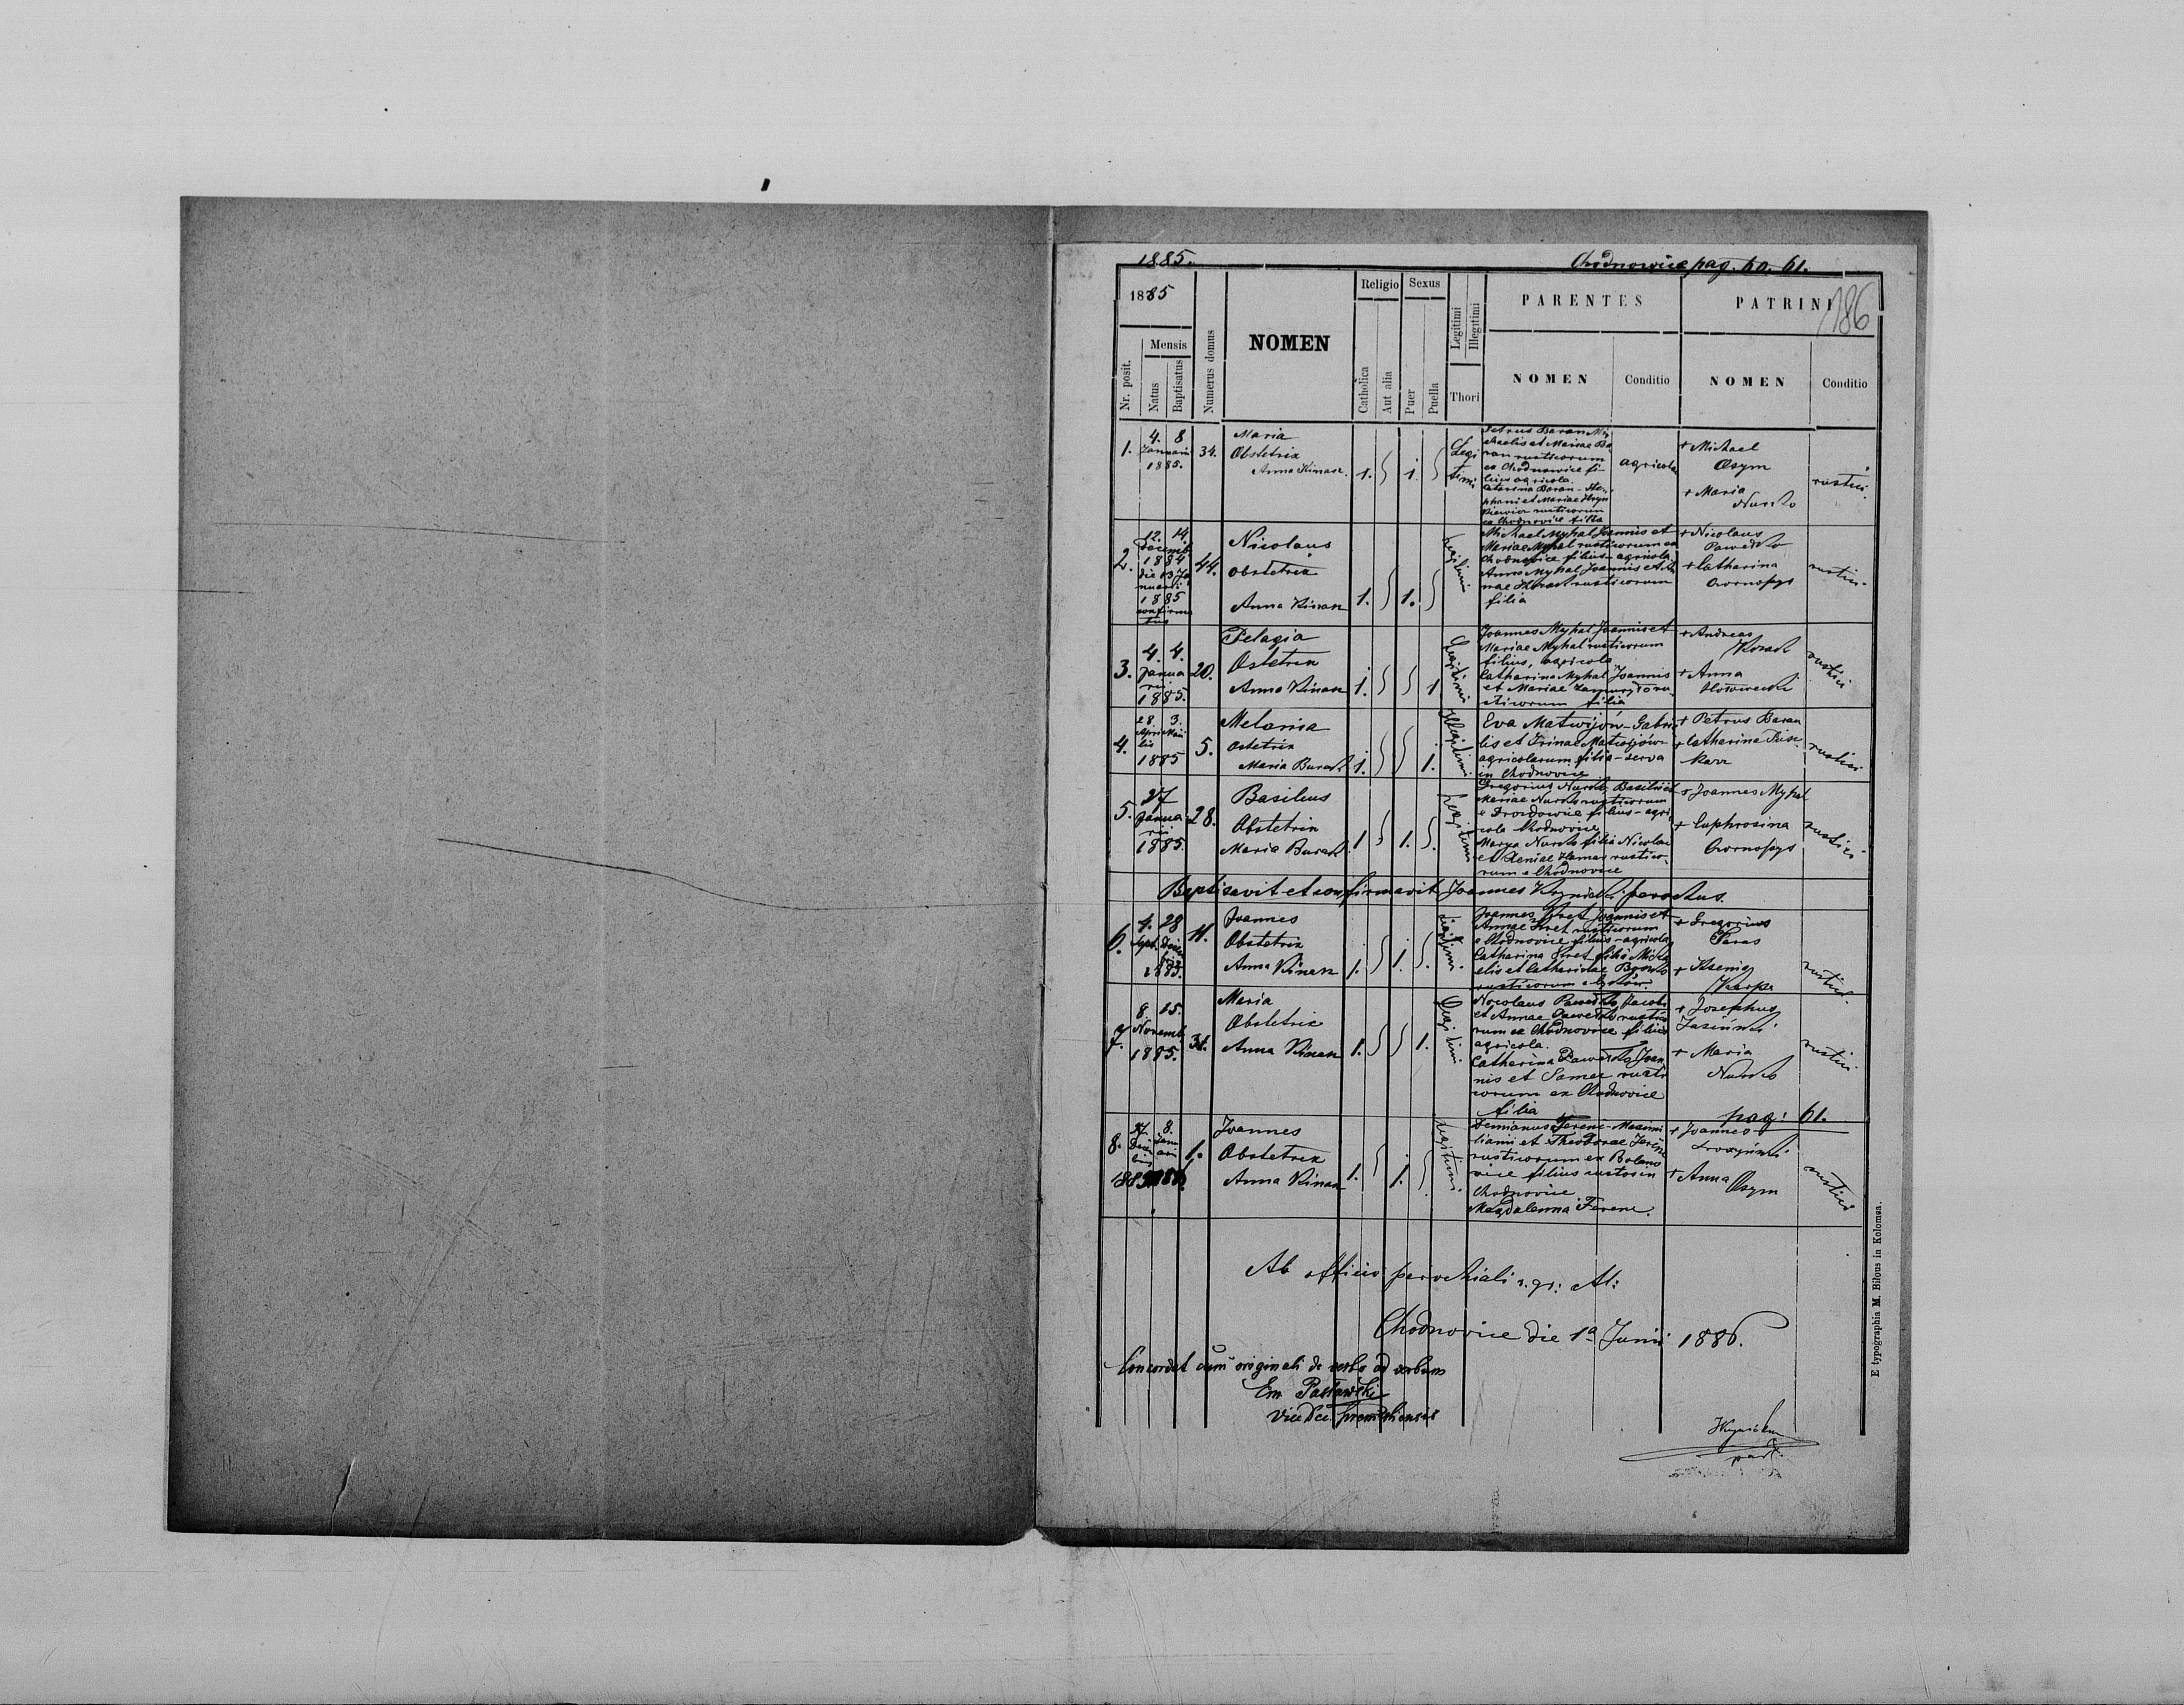 1885.
Chodnowice pag. 60. 61.
186
1885
Nr. posit.
Mensis
Natus
Baptisatus
Numerus domus
NOMEN
Religio
Catholica
Aut alia
Sexus
Puer
Puella
Legitimi
Illegitimi
Thori
PARENTES
NOMEN
Conditio
PATRINI
NOMEN
Conditio
1.
4. 8
Januarii
1885.
34.
Maria
Obstetrix
Anna Kinasz.
1.
1.
Legi
timi
Petrus Baran Mi
chaelis et Mariae Ba
ran rusticorum
ex Chodnowice fi-
lius agricola.
Catarina Baran - Ste-
phani et Mariae Hryn
kiewicz rusticorum
ex Chodnovice filia
agricola
+ Michael
Osym
+ Maria
rustici.
2.
12. 14.
Decemb
1884
die 13 Ja
nuarii
1885
confirma
tus
44.
Nicolaus
obstetrix
Anna Kinasz
1.
1.
Legitimi
Michael Myhal Joannis et
Mariae Myhal rusticorum ex
Chodnovice filius - agricola
Anna Myhal Joannis et
rusticorum
filia
+ Nicolaus
+ Catharina
Czornopys
rustici.
3.
4. 4.
Janua
rii
1885.
20.
Pelagia
Ostetrix
Anna Kinasz
1.
1
Legitimi
Joannes Myhal Joannis et
Mariae Myhal rusticorum
filius, agricola
Catharina Myhal Joannis
et Mariae
sticorum filia
+ Andreas
+ Anna
rustici
4.
28. 3.
Apri Mai
lis
1885
5.
Melania
Ostetrix
Maria
1.
1.
Illegitimi
Eva Matwijów - Gabrie
lis et Irinae Matwijów
agricolarum filia - serva
in Chodnovice
+ Petrus Baran
+ Catharina
rustici
5.
27
Janua
rii
1885.
28.
Basilius
Obstetrix
Maria
1
1.
Legitimi
Gregorius Basilii et
Mariae rusticorum
e Drozdowice filius - agri
cola Chodnovice
Marya filia Nicolai
et Xeniae Hamar rustico-
rum e Chodnovice
+ Joannes Myhal
+ Euphrosina
Czornopys
rustici
Baptisavit et confirmavit Joannes parochus.
6.
4. 28
Sept. Decem
bris
1885.
11.
Joannes
Obstetrix
Anna Kinasz
1.
1.
Legitimi.
Joannes Joannis et
Annae rusticorum
e Chodnovice filius - agricola
Catharina filia Micha
elis et Catharinae
rusticorum
+ Gregorius
+ Ksenia
Karpa
rustici.
7.
8. 15.
Novemb.
1885.
31.
Maria
Obstetrix
Anna Kinasz
1.
1.
Legitimi
Nicolaus Jacobi
et Annae rustico
rum ex Chodnovice filius
agricola.
Catherina Joan
nis et rusti
corum ex Chodnovice
filia
+ Josephus
Jasiński
+ Maria
rustici
pag: 61.
8.
27. 8.
Decem Janu
bris arii
1885 1886.
1.
Joannes
Obstetrix
Anna Kinasz
1.
1.
Legitimi.
Demianus Ferenc - Maximi
lianii et Theodorae
rusticorum ex
vice filius custos in
Chodnovice
Magdalenna Ferenc.
+ Joannes
+ Anna
Osym
rustici
Ab officio parochiali r. gr: cat:
Chodnovice die 1ª Junii 1886.
Concordat cum originali de verbo ad verbum
Em Pasławski
E typographia M. Bilous in Kolomea.